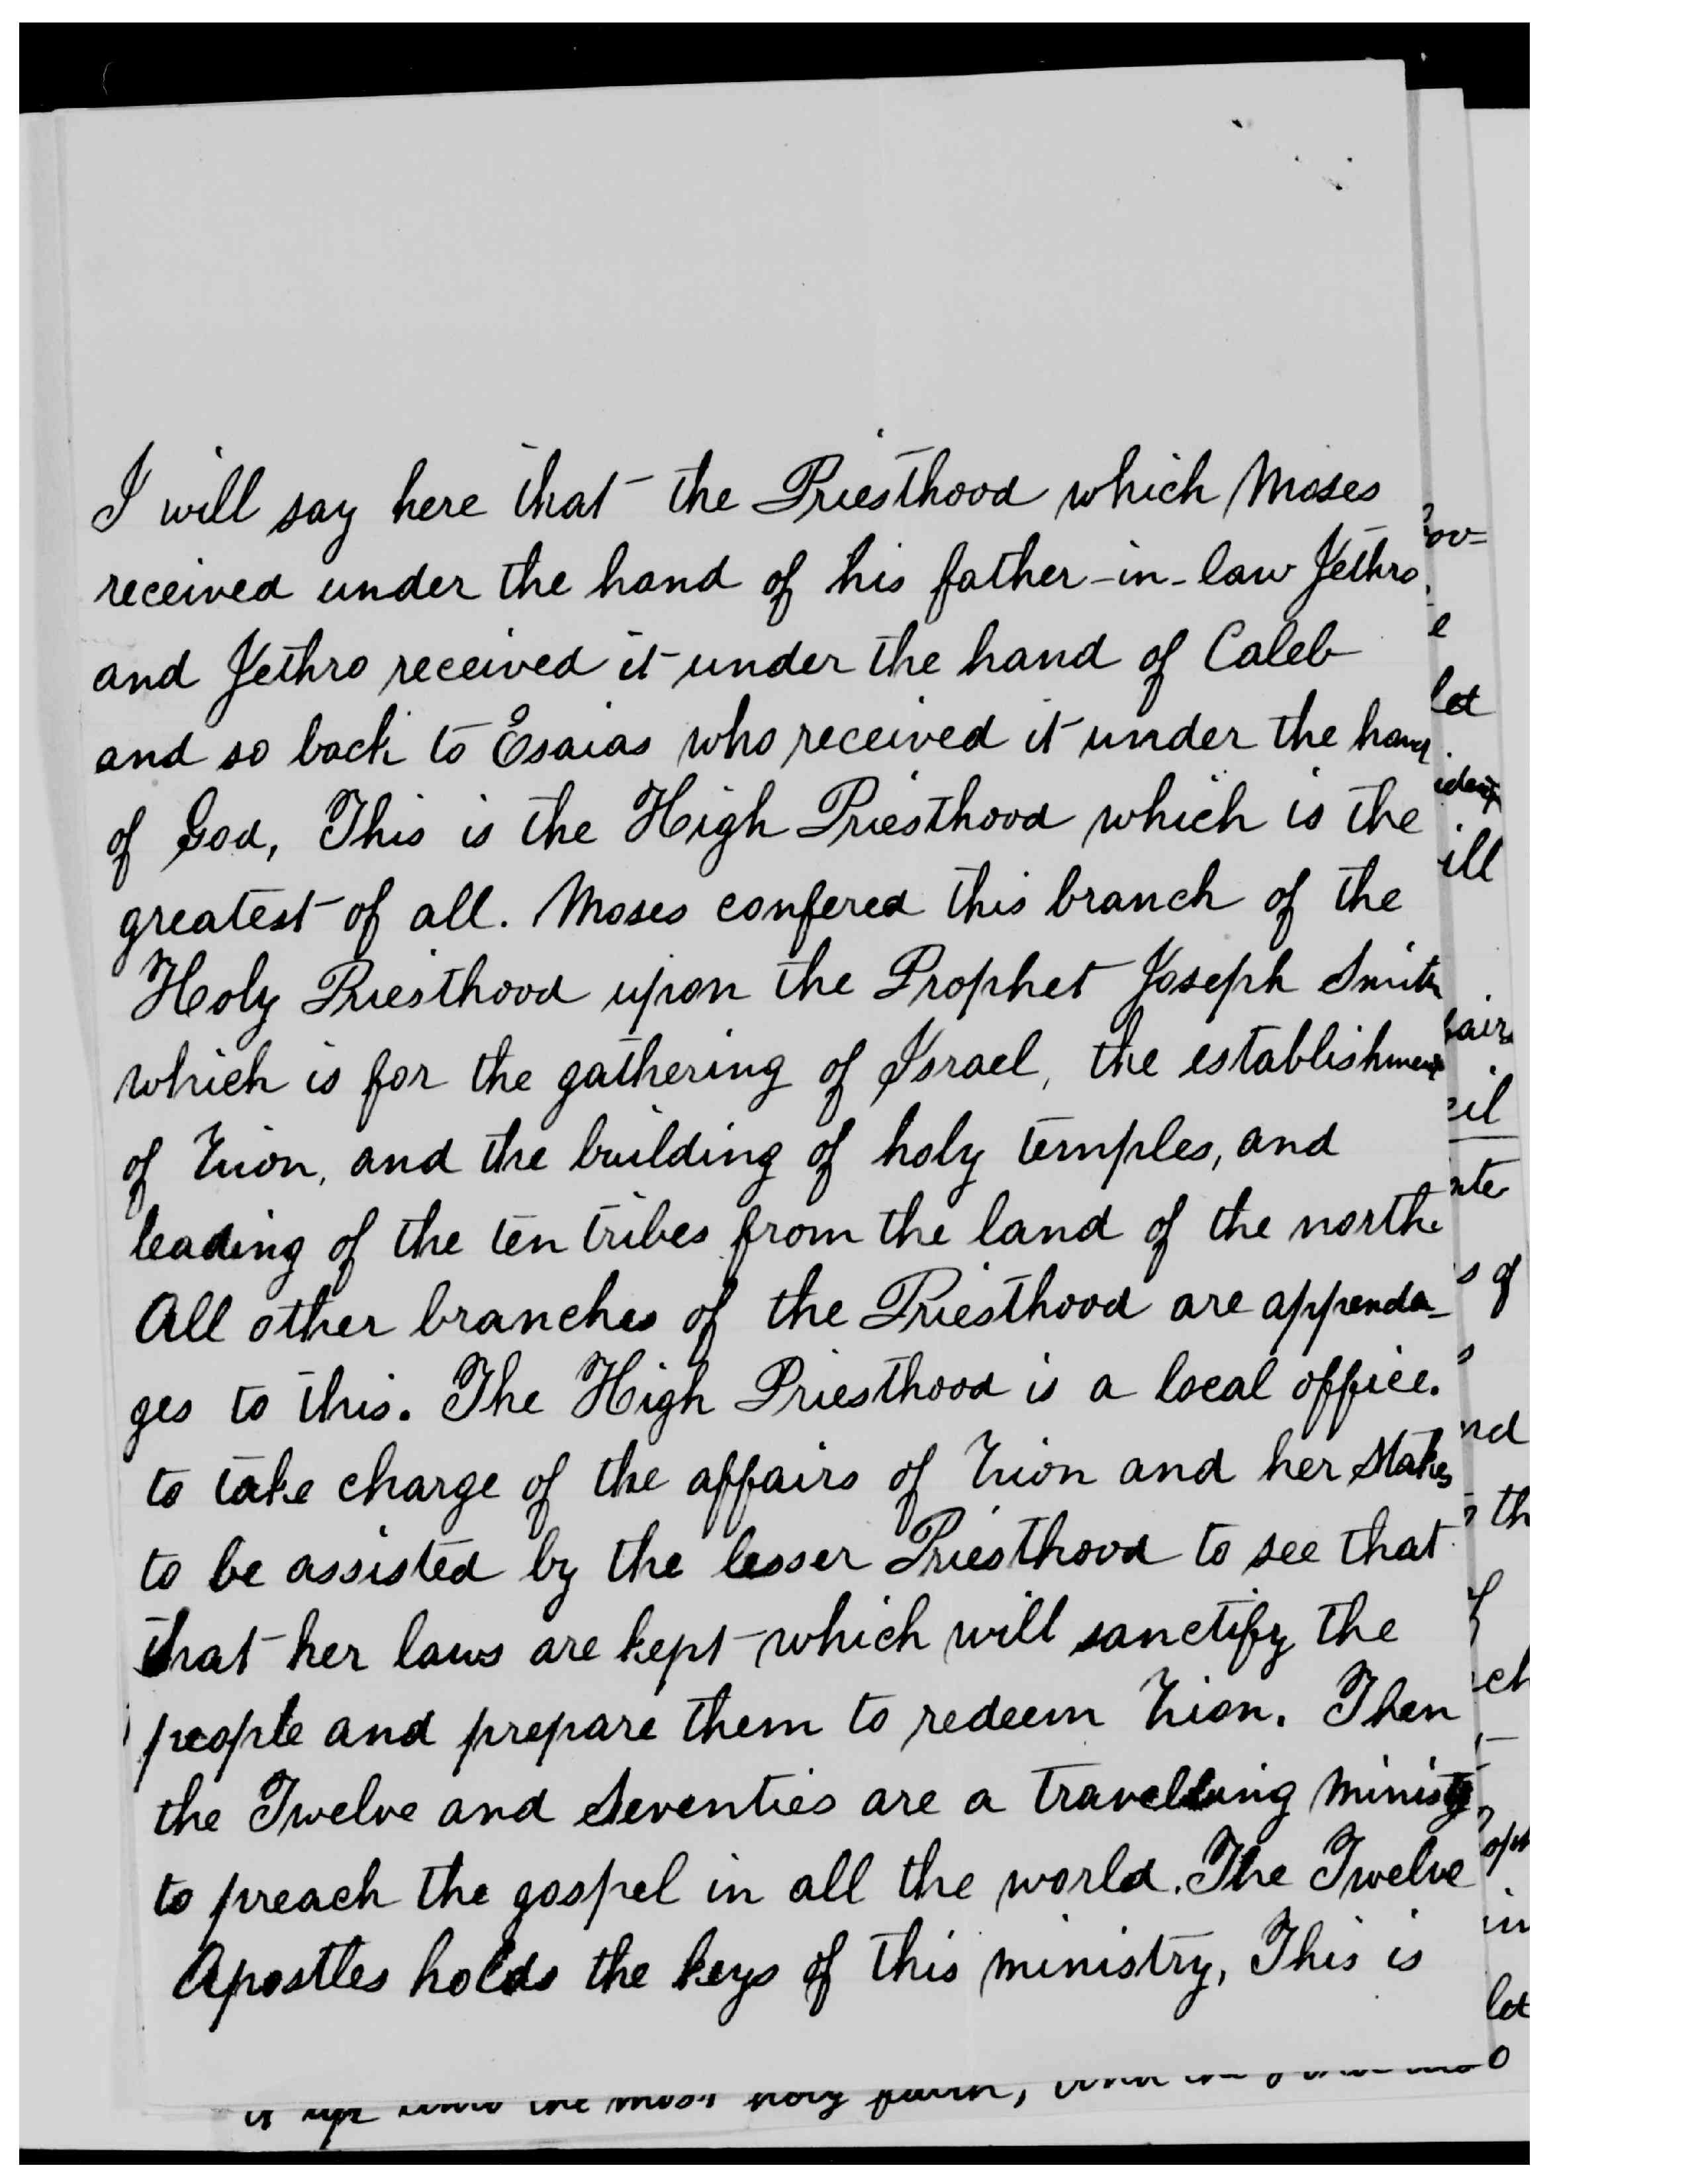 I will say here that the Priesthood which Moses
received under the hand of his father-in-law Jethro
and Jethro received it under the hand of Caleb
and so back to Esaias who received it under the hand
of God, This is the High Priesthood which is the
greatest of all. Moses confered this branch of the
Holy Priesthood upon the Prophet Joseph Smith
which is for the gathering of Israel, the establishment
of Zion, and the building of holy temples, and
leading of the ten tribes from the land of the north
All other branches of the Priesthood are appenda-
ges to this. The High Priesthood is a local office.
to take charge of the affairs of Zion and her Stakes
to be assisted by the lesser Priesthood to see that
that her laws are kept which will sanctify the
people and prepare them to redeem Zion. Then
the Twelve and Seventies are a travelling ministry
to preach the gospel in all the world. The Twelve
Apostles holds the keys of this ministry, This is